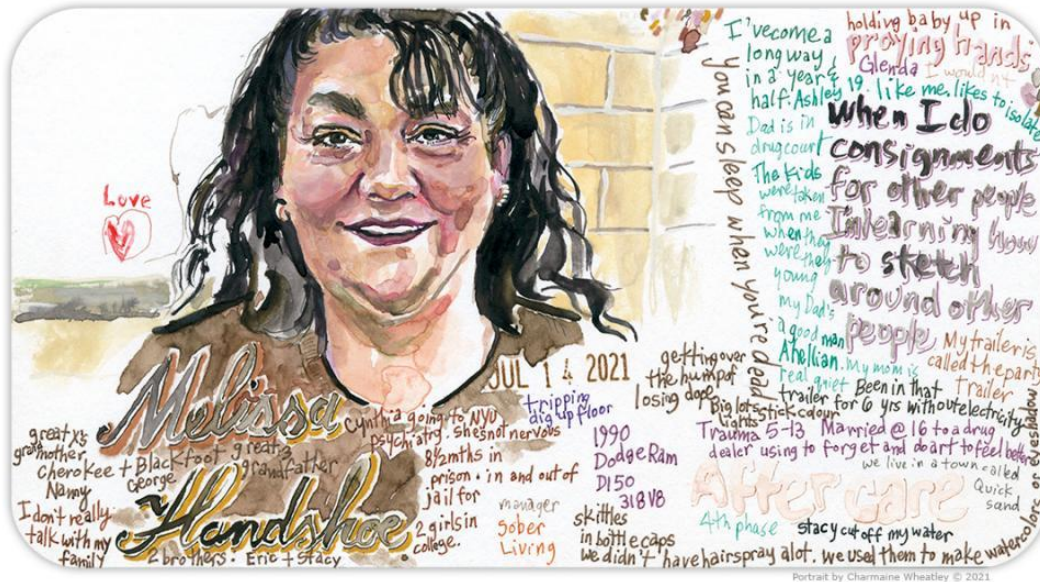 Love
Melissa
Handshoe
JUL 14 2021
great x's
grandmother
Cherokee + Blackfoot
Nanny
George
great x3
grandfather
I don't really
talk with my
family
2 brothers: Eric + Stacy
Cynthia going to NYU
psychiatry. she's not nervous
8 1/2 mths in
prison. in and out of
jail for
2 girls in
college.
manager
Sober
Living
tripping
dig up floor
1990
Dodge Ram
D150
318 V8
skittles
in bottle caps
we didn't have hairspray alot. we used them to make watercolors
getting over
the hump of
losing dope
You can sleep when you're dead
I've come a
long way
in a year &
half. Ashley 19. like me, likes to isolate
Dad is in
drug court
The kids
were taken
from me
when they
were they
young
my Dad's
a good man
my mom is
real quiet
holding baby up in
praying hands
Glenda
I wouldn't
When I do
consignments
for other people
I'm learning how
to sketch
around other
people
My trailer is
called the party
trailer
Been in that
trailer for 6 yrs without electricity
Big lots
lights
stick colour
Trauma 5-13 Married @ 16 to a drug
dealer using to forget and do art to feel better
we live in a town called
Quick
sand
After care
4th phase
stacy cut off my water
Portrait by Charmaine Wheatley © 2021